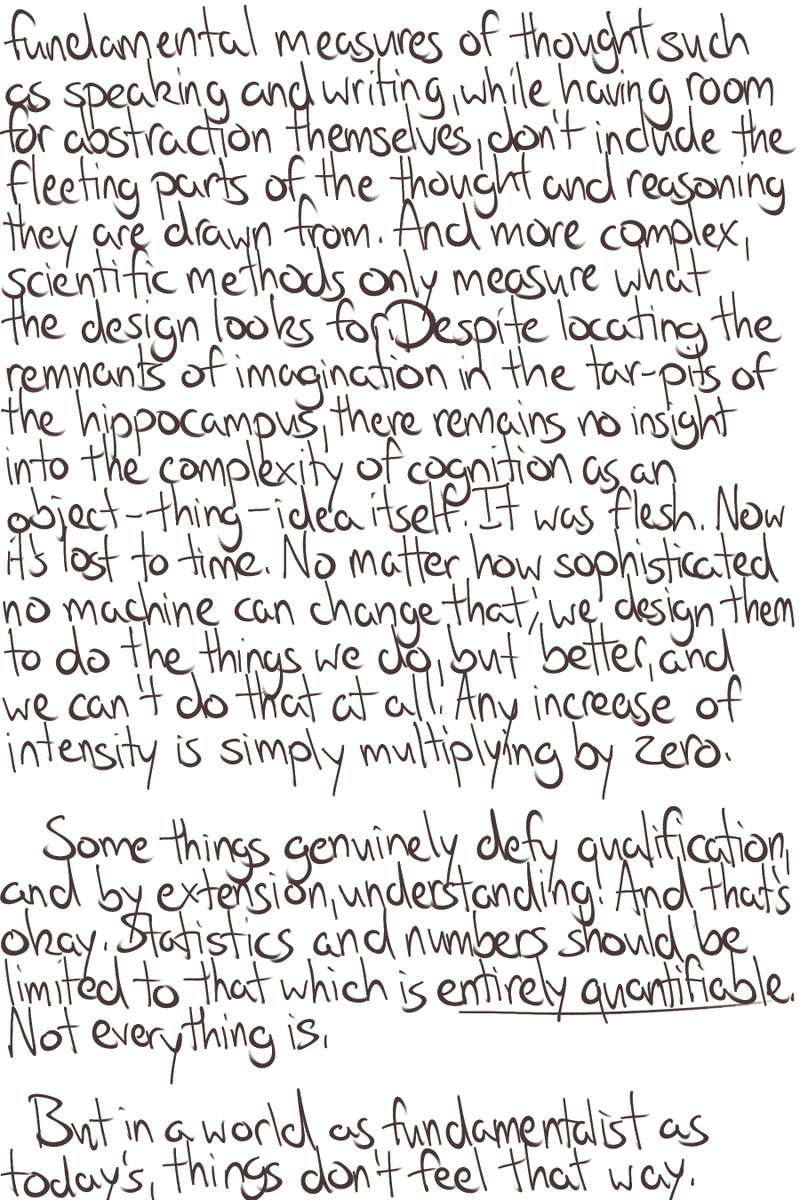 fundamental measures of thought such
as speaking and writing, while having room
for abstraction themselves, don't include the
fleeting parts of the thought and reasoning
they are drawn from. And more complex,
scientific methods only measure what
the design looks for. Despite locating the
remnants of imagination in the tar-pits of
the hippocampus, there remains no insight
into the complexity of cognition as an
object-thing-idea itself. It was flesh. Now
it's lost to time. No matter how sophisticated
no machine can change that; we design them
to do the things we do, but better, and
we can't do that at all. Any increase of
intensity is simply multiplying by zero.
Some things genuinely defy qualification,
and by extension, understanding. And that's
okay. Statistics and numbers should be
limited to that which is entirely quantifiable.
Not everything is.
But in a world as fundamentalist as
today's, things don't feel that way.